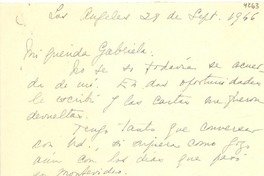 4263
Los Angeles 28 de Sept. 1946
Mi querida Gabriela.
No se si todavía se acuer-
da de mi. En dos oportunidades
le escribí y las cartas me fueron
devueltas.
Tengo tanto que conversar
con Ud., si supiera como gozo
aún con los días que pasó
en Montevideo.